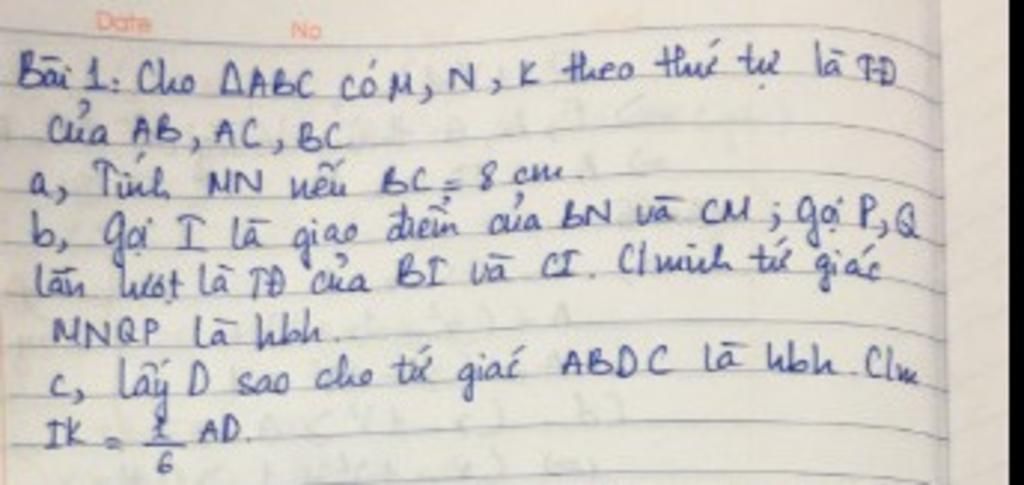 Date No
Bài 1: Cho ΔABC có M, N, K theo thứ tự là TĐ
của AB, AC, BC
a, Tính MN nếu BC = 8 cm.
b, Gọi I là giao điểm của BN và CM ; gọi P, Q
lần lượt là TĐ của BI và CI. C/minh tứ giác
MNQP là hbh.
c, Lấy D sao cho tứ giác ABDC là hbh. C/m
IK = 1/6 AD.